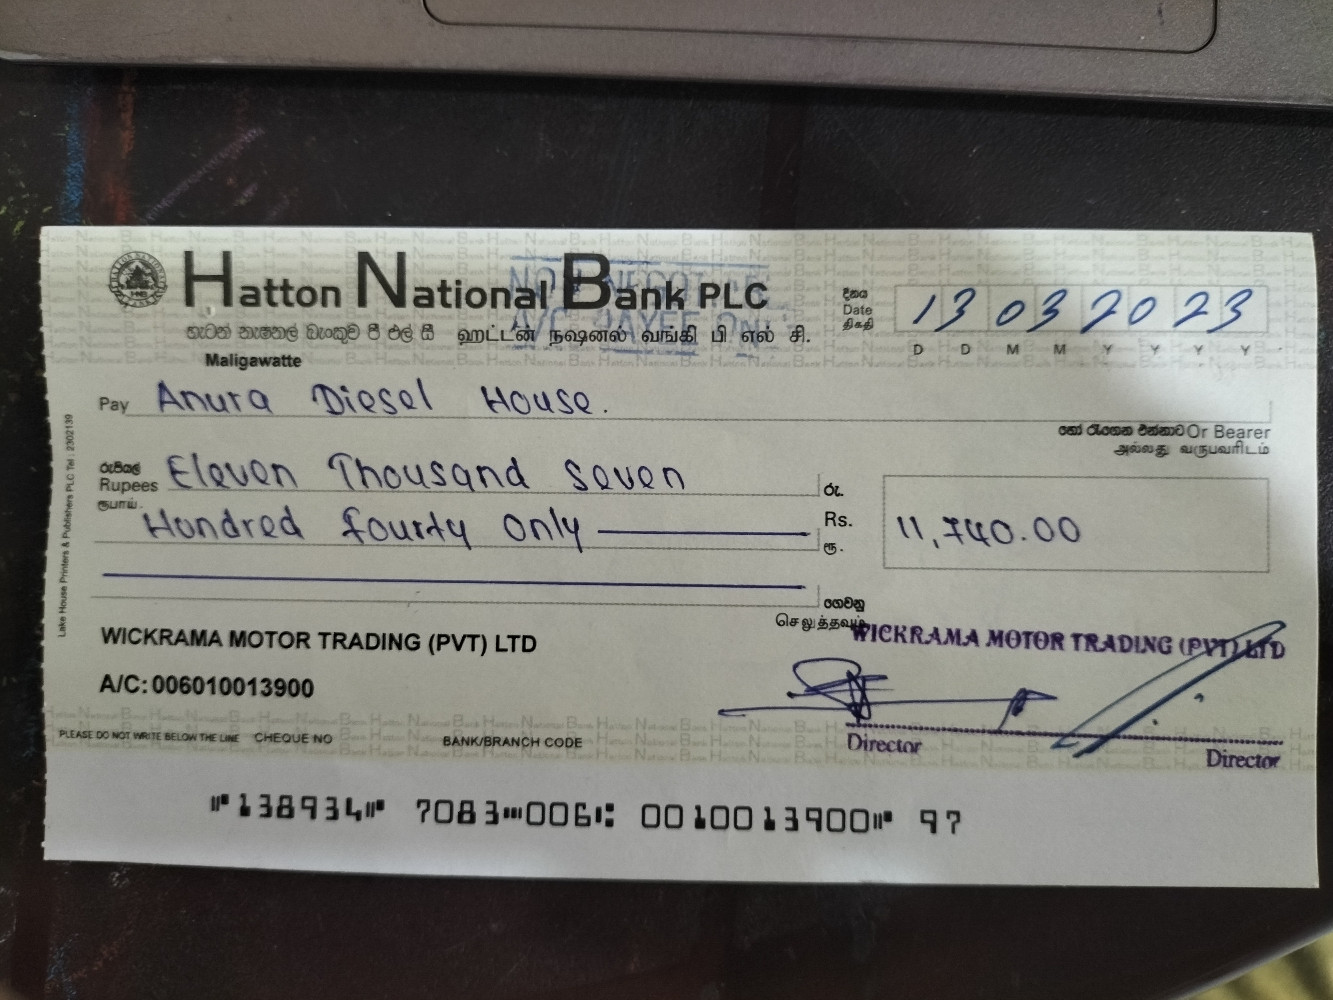 Hatton National Bank PLC
NOT NEGOTIABLE
A/C PAYEE ONLY
හැටන් නැෂනල් බැංකුව පී එල් සී ஹட்டன் நஷனல் வங்கி பி எல் சி.
Maligawatte
දිනය
Date
திகதி
13 03 2023
D D M M Y Y Y Y
Pay Anura Diesel House.
හෝ රැගෙන එන්නාට Or Bearer
அல்லது வருபவரிடம்
රුපියල්
Rupees Eleven Thousand Seven
ரூபாய்.
Hondred fourty Only
රු.
Rs. 11,740.00
ரூ.
ගෙවනු
செலுத்தவும்
WICKRAMA MOTOR TRADING (PVT) LTD
A/C: 006010013900
WICKRAMA MOTOR TRADING (PVT) LTD
Director
Director
PLEASE DO NOT WRITE BELOW THE LINE CHEQUE NO BANK/BRANCH CODE
⑈138934⑈ 7083⑉006⑆ 0010013900⑈ 97
Lake House Printers & Publishers PLC Tel : 2302139